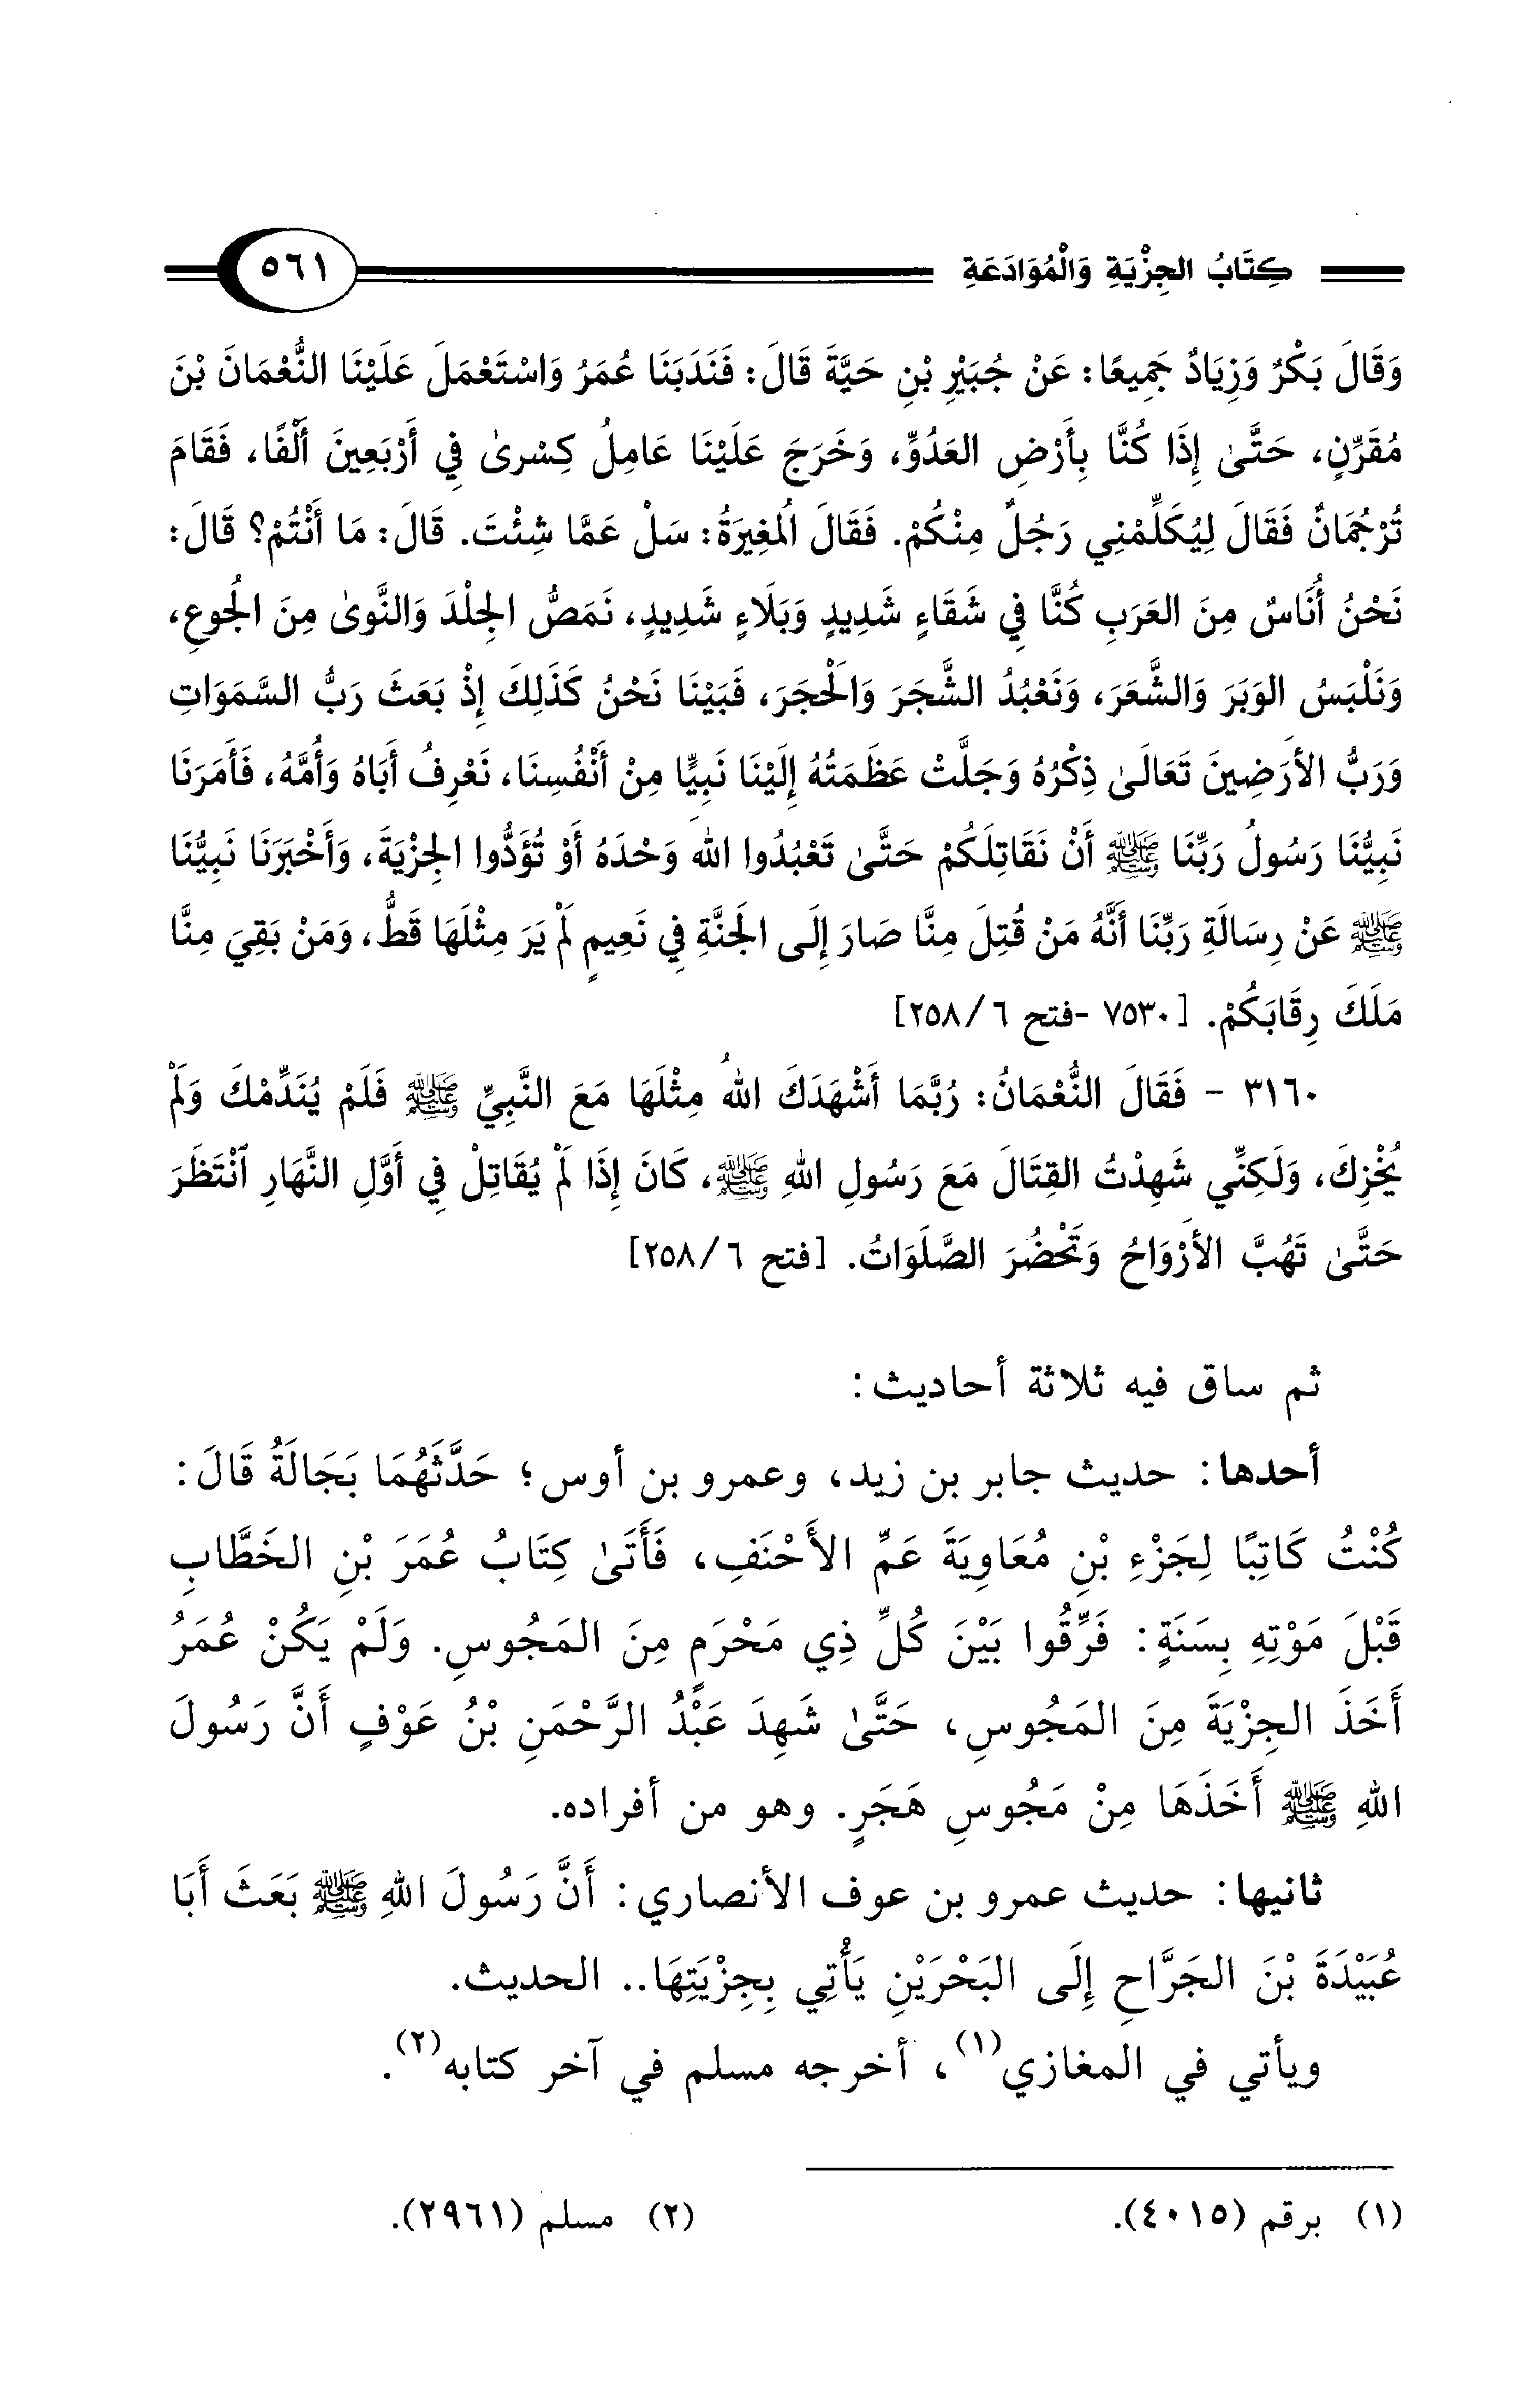 كِتَابُ الجِزْيَةِ وَالْمُوَادَعَةِ ٥٦١
وَقَالَ بَكْرٌ وَزِيَادٌ جَمِيعًا: عَنْ جُبَيْرِ بْنِ حَيَّةَ قَالَ: فَنَدَبَنَا عُمَرُ وَاسْتَعْمَلَ عَلَيْنَا النُّعْمَانَ بْنَ
مُقَرِّنٍ، حَتَّىٰ إِذَا كُنَّا بِأَرْضِ العَدُوِّ، وَخَرَجَ عَلَيْنَا عَامِلُ كِسْرىٰ فِي أَرْبَعِينَ أَلْفًا، فَقَامَ
تُرْجُمَانٌ فَقَالَ لِيُكَلِّمْنِي رَجُلٌ مِنْكُمْ. فَقَالَ المُغِيرَةُ: سَلْ عَمَّا شِئْتَ. قَالَ: مَا أَنْتُمْ؟ قَالَ:
نَحْنُ أُنَاسٌ مِنَ العَرَبِ كُنَّا فِي شَقَاءٍ شَدِيدٍ وَبَلَاءٍ شَدِيدٍ، نَمَصُّ الجِلْدَ وَالنَّوىٰ مِنَ الجُوعِ،
وَنَلْبَسُ الوَبَرَ وَالشَّعَرَ، وَنَعْبُدُ الشَّجَرَ وَالْحَجَرَ، فَبَيْنَا نَحْنُ كَذَلِكَ إِذْ بَعَثَ رَبُّ السَّمَوَاتِ
وَرَبُّ الأَرَضِينَ تَعَالَىٰ ذِكْرُهُ وَجَلَّتْ عَظَمَتُهُ إِلَيْنَا نَبِيًّا مِنْ أَنْفُسِنَا، نَعْرِفُ أَبَاهُ وَأُمَّهُ، فَأَمَرَنَا
نَبِيُّنَا رَسُولُ رَبِّنَا ﷺ أَنْ نَقَاتِلَكُمْ حَتَّىٰ تَعْبُدُوا اللهَ وَحْدَهُ أَوْ تُؤَدُّوا الجِزْيَةَ، وَأَخْبَرَنَا نَبِيُّنَا
ﷺ عَنْ رِسَالَةِ رَبِّنَا أَنَّهُ مَنْ قُتِلَ مِنَّا صَارَ إِلَى الجَنَّةِ فِي نَعِيمٍ لَمْ يَرَ مِثْلَهَا قَطُّ، وَمَنْ بَقِيَ مِنَّا
مَلَكَ رِقَابَكُمْ. [٧٥٣٠ -فتح ٦/ ٢٥٨]
٣١٦٠ - فَقَالَ النُّعْمَانُ: رُبَّمَا أَشْهَدَكَ اللهُ مِثْلَهَا مَعَ النَّبِيِّ ﷺ فَلَمْ يُنَدِّمْكَ وَلَمْ
يُخْزِكَ، وَلَكِنِّي شَهِدْتُ القِتَالَ مَعَ رَسُولِ اللهِ ﷺ، كَانَ إِذَا لَمْ يُقَاتِلْ فِي أَوَّلِ النَّهَارِ ٱنْتَظَرَ
حَتَّىٰ تَهُبَّ الأَرْوَاحُ وَتَحْضُرَ الصَّلَوَاتُ. [فتح ٦/ ٢٥٨]
ثم ساق فيه ثلاثة أحاديث:
أحدها: حديث جابر بن زيد، وعمرو بن أوس؛ حَدَّثَهُمَا بَجَالَةُ قَالَ:
كُنْتُ كَاتِبًا لِجَزْءِ بْنِ مُعَاوِيَةَ عَمِّ الأَحْنَفِ، فَأَتَىٰ كِتَابُ عُمَرَ بْنِ الخَطَّابِ
قَبْلَ مَوْتِهِ بِسَنَةٍ: فَرِّقُوا بَيْنَ كُلِّ ذِي مَحْرَمٍ مِنَ المَجُوسِ. وَلَمْ يَكُنْ عُمَرُ
أَخَذَ الجِزْيَةَ مِنَ المَجُوسِ، حَتَّىٰ شَهِدَ عَبْدُ الرَّحْمَنِ بْنُ عَوْفٍ أَنَّ رَسُولَ
اللهِ ﷺ أَخَذَهَا مِنْ مَجُوسِ هَجَرٍ. وهو من أفراده.
ثانيها: حديث عمرو بن عوف الأنصاري: أَنَّ رَسُولَ اللهِ ﷺ بَعَثَ أَبَا
عُبَيْدَةَ بْنَ الجَرَّاحِ إِلَى البَحْرَيْنِ يَأْتِي بِجِزْيَتِهَا.. الحديث.
ويأتي في المغازي(١)، أخرجه مسلم في آخر كتابه(٢).
(١) برقم (٤٠١٥). (٢) مسلم (٢٩٦١).